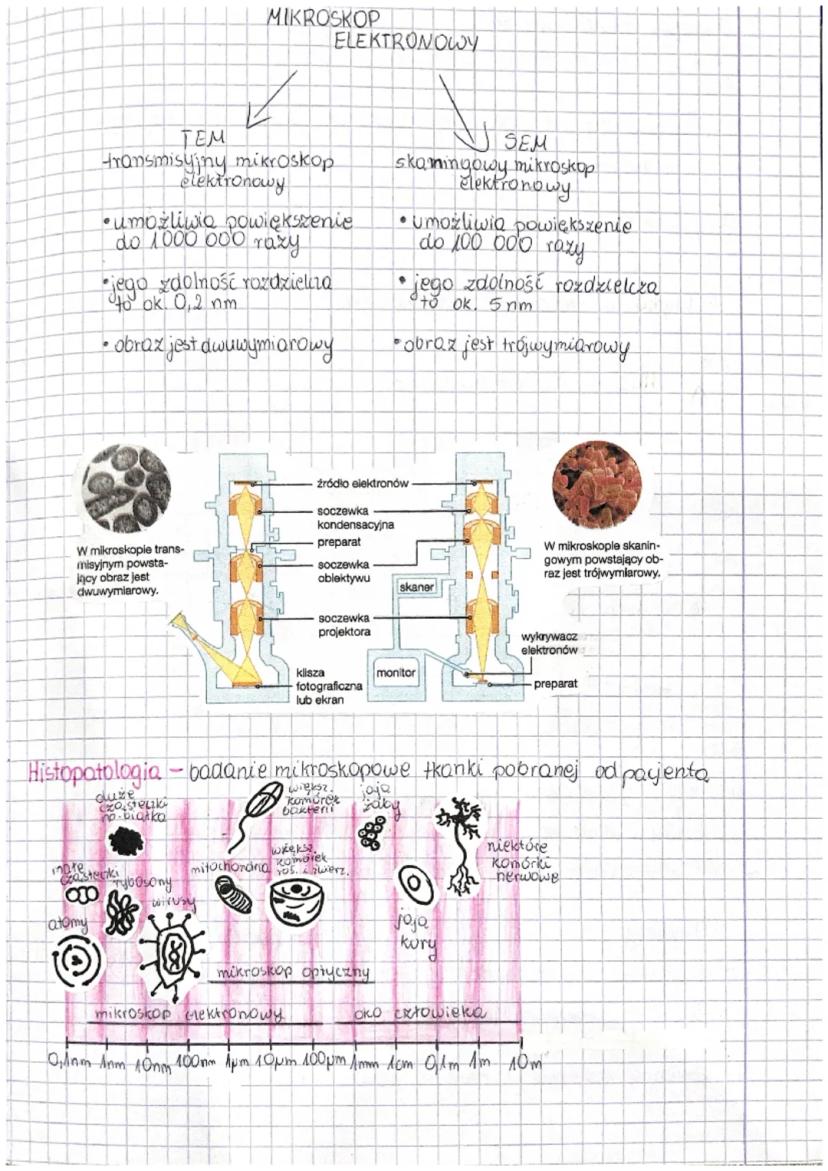 MIKROSKOP
ELEKTRONOWY
TEM
transmisyjny mikroskop
elektronowy
• umożliwia powiększenie
do 1000 000 razy
• jego zdolność rozdzielcza
to ok. 0,2 nm
• obraz jest dwuwymiarowy
SEM
skaningowy mikroskop
elektronowy
• umożliwia powiększenie
do 100 000 razy
• jego zdolność rozdzielcza
to ok. 5 nm
• obraz jest trójwymiarowy
W mikroskopie trans-
misyjnym powsta-
jący obraz jest
dwuwymiarowy.
źródło elektronów
soczewka
kondensacyjna
preparat
soczewka
obiektywu
skaner
soczewka
projektora
klisza
fotograficzna
lub ekran
monitor
wykrywacz
elektronów
preparat
W mikroskopie skanin-
gowym powstający ob-
raz jest trójwymiarowy.
Histopatologia – badanie mikroskopowe tkanki pobranej od pacjenta
duże
cząsteczki
np. białka
większ.
komórek
bakterii
jaja
żaby
niektóre
komórki
nerwowe
małe
cząsteczki
rybosomy
mitochondria
większ.
komórek
roś. i zwierz.
wirusy
atomy
jaja
kury
mikroskop optyczny
mikroskop elektronowy
oko człowieka
0,1nm 1nm 10nm 100nm 1μm 10μm 100μm 1mm 1cm 0,1m 1m 10m